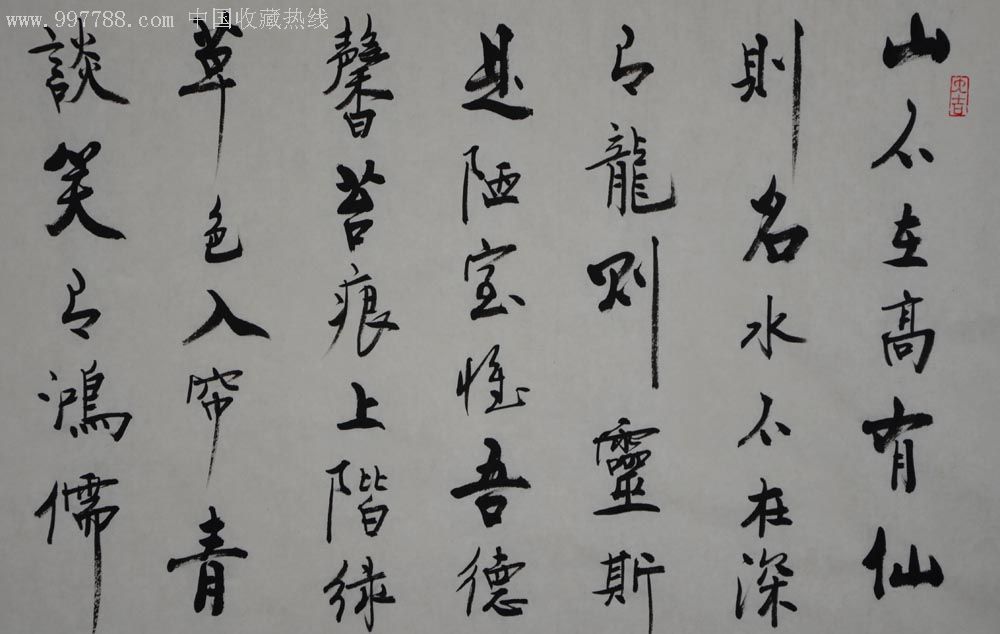 www.997788.com 中国收藏热线
山不在高有仙
則名水不在深
有龍則靈斯
是陋室惟吾德
馨苔痕上階緑
草色入帘青
談笑有鴻儒